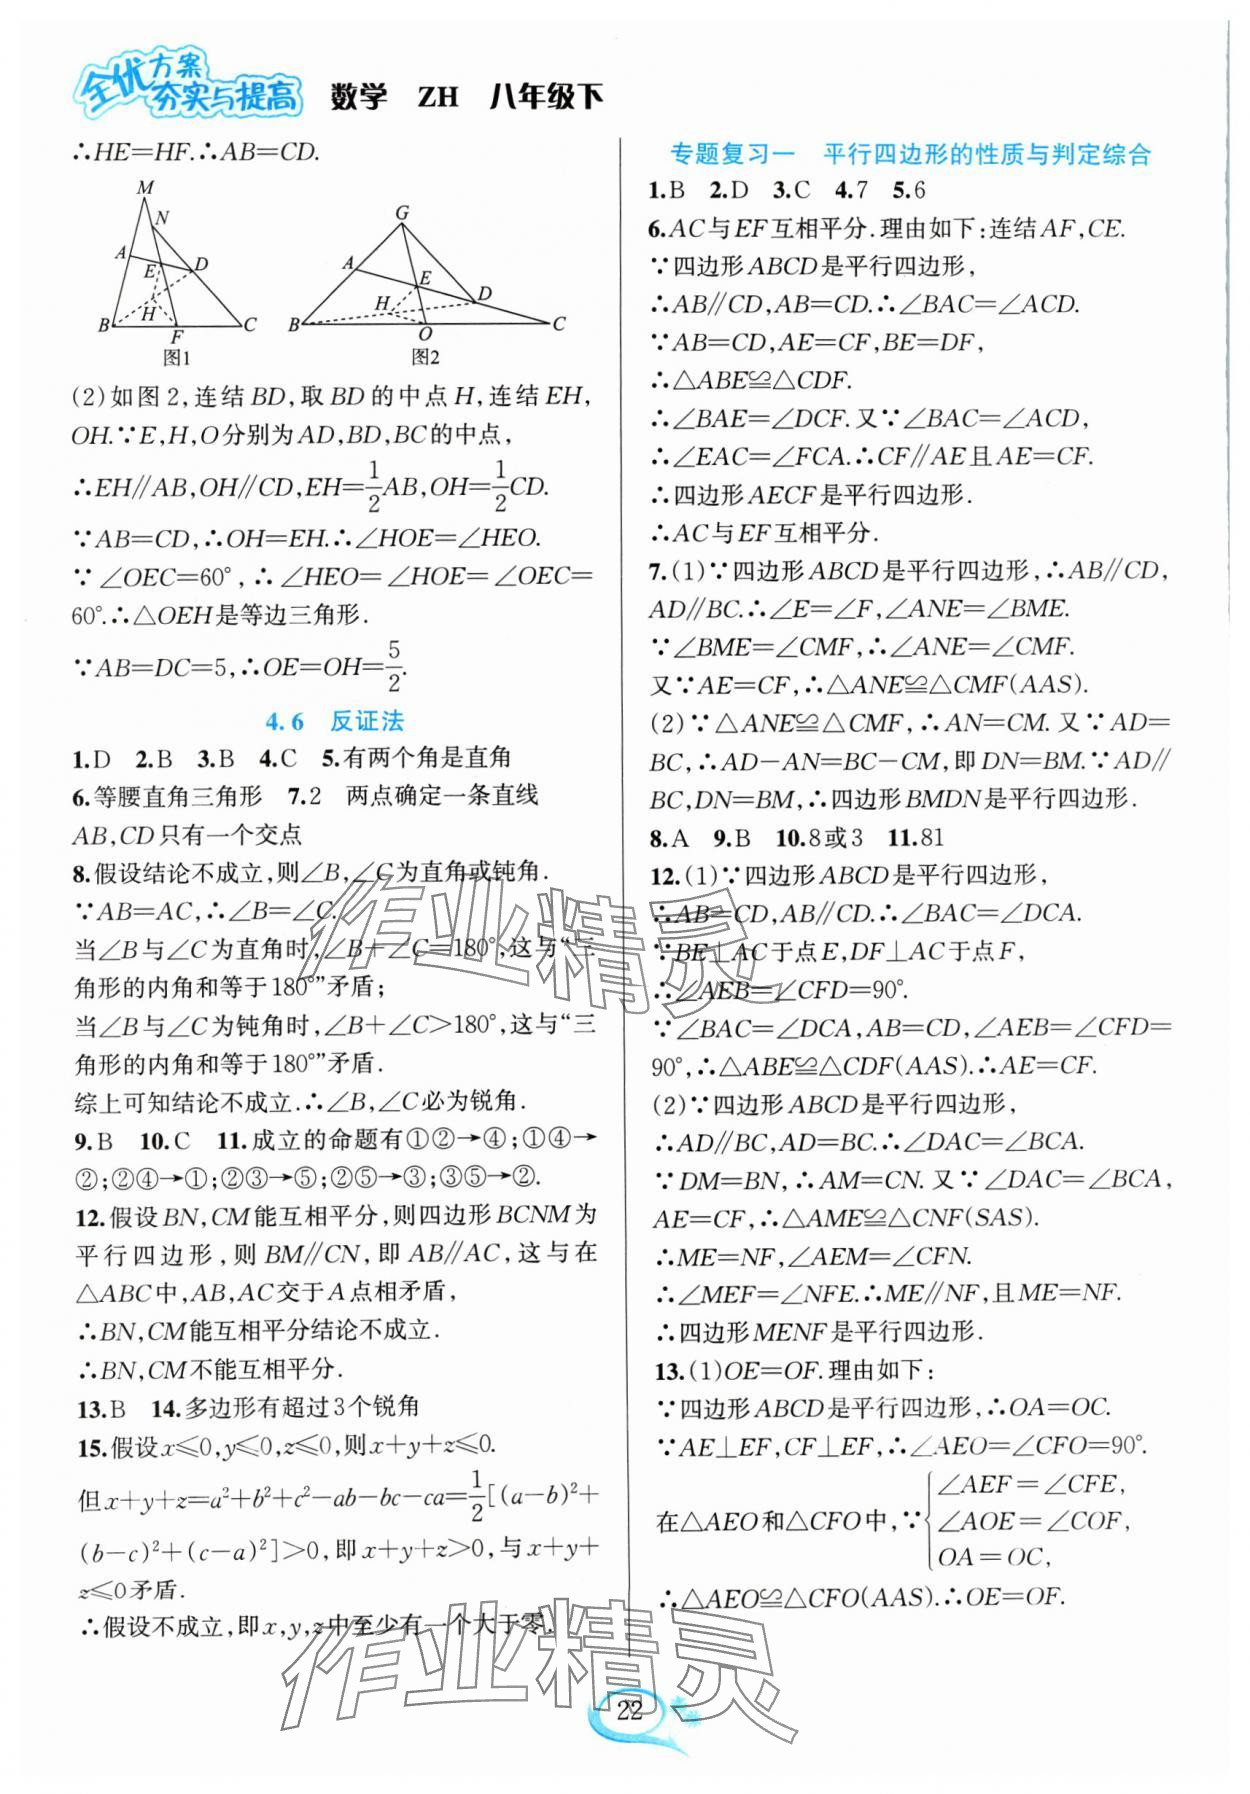 全优方案
夯实与提高 数学 ZH 八年级下
∴HE=HF.∴AB=CD.
M
N
A
E
D
H
B
F
C
图1
G
A
E
D
H
B
O
C
图2
(2)如图2,连结BD,取BD的中点H,连结EH,
OH.∵E,H,O分别为AD,BD,BC的中点,
∴EH∥AB,OH∥CD,EH=1/2AB,OH=1/2CD.
∵AB=CD,∴OH=EH.∴∠HOE=∠HEO.
∵∠OEC=60°,∴∠HEO=∠HOE=∠OEC=
60°.∴△OEH是等边三角形.
∵AB=DC=5,∴OE=OH=5/2.
4.6 反证法
1.D 2.B 3.B 4.C 5.有两个角是直角
6.等腰直角三角形 7.2 两点确定一条直线
AB,CD只有一个交点
8.假设结论不成立,则∠B,∠C为直角或钝角.
∵AB=AC,∴∠B=∠C.
当∠B与∠C为直角时,∠B+∠C=180°,这与“三
角形的内角和等于180°”矛盾;
当∠B与∠C为钝角时,∠B+∠C>180°,这与“三
角形的内角和等于180°”矛盾.
综上可知结论不成立.∴∠B,∠C必为锐角.
9.B 10.C 11.成立的命题有①②→④;①④→
②;②④→①;②③→⑤;②⑤→③;③⑤→②.
12.假设BN,CM能互相平分,则四边形BCNM为
平行四边形,则BM∥CN,即AB∥AC,这与在
△ABC中,AB,AC交于A点相矛盾,
∴BN,CM能互相平分结论不成立.
∴BN,CM不能互相平分.
13.B 14.多边形有超过3个锐角
15.假设x≤0,y≤0,z≤0,则x+y+z≤0.
但x+y+z=a²+b²+c²-ab-bc-ca=1/2[(a-b)²+
(b-c)²+(c-a)²]>0,即x+y+z>0,与x+y+
z≤0矛盾.
∴假设不成立,即x,y,z中至少有一个大于零.
专题复习一 平行四边形的性质与判定综合
1.B 2.D 3.C 4.7 5.6
6.AC与EF互相平分.理由如下:连结AF,CE.
∵四边形ABCD是平行四边形,
∴AB∥CD,AB=CD.∴∠BAC=∠ACD.
∵AB=CD,AE=CF,BE=DF,
∴△ABE≌△CDF.
∴∠BAE=∠DCF.又∵∠BAC=∠ACD,
∴∠EAC=∠FCA.∴CF∥AE且AE=CF.
∴四边形AECF是平行四边形.
∴AC与EF互相平分.
7.(1)∵四边形ABCD是平行四边形,∴AB∥CD,
AD∥BC.∴∠E=∠F,∠ANE=∠BME.
∵∠BME=∠CMF,∴∠ANE=∠CMF.
又∵AE=CF,∴△ANE≌△CMF(AAS).
(2)∵△ANE≌△CMF,∴AN=CM.又∵AD=
BC,∴AD-AN=BC-CM,即DN=BM.∵AD∥
BC,DN=BM,∴四边形BMDN是平行四边形.
8.A 9.B 10.8或3 11.81
12.(1)∵四边形ABCD是平行四边形,
∴AB=CD,AB∥CD.∴∠BAC=∠DCA.
∵BE⊥AC于点E,DF⊥AC于点F,
∴∠AEB=∠CFD=90°.
∵∠BAC=∠DCA,AB=CD,∠AEB=∠CFD=
90°,∴△ABE≌△CDF(AAS).∴AE=CF.
(2)∵四边形ABCD是平行四边形,
∴AD∥BC,AD=BC.∴∠DAC=∠BCA.
∵DM=BN,∴AM=CN.又∵∠DAC=∠BCA,
AE=CF,∴△AME≌△CNF(SAS).
∴ME=NF,∠AEM=∠CFN.
∴∠MEF=∠NFE.∴ME∥NF,且ME=NF.
∴四边形MENF是平行四边形.
13.(1)OE=OF.理由如下:
∵四边形ABCD是平行四边形,∴OA=OC.
∵AE⊥EF,CF⊥EF,∴∠AEO=∠CFO=90°.
∠AEF=∠CFE,
在△AEO和△CFO中,∵{∠AOE=∠COF,
OA=OC,
∴△AEO≌△CFO(AAS).∴OE=OF.
作业精灵
作业精灵
22